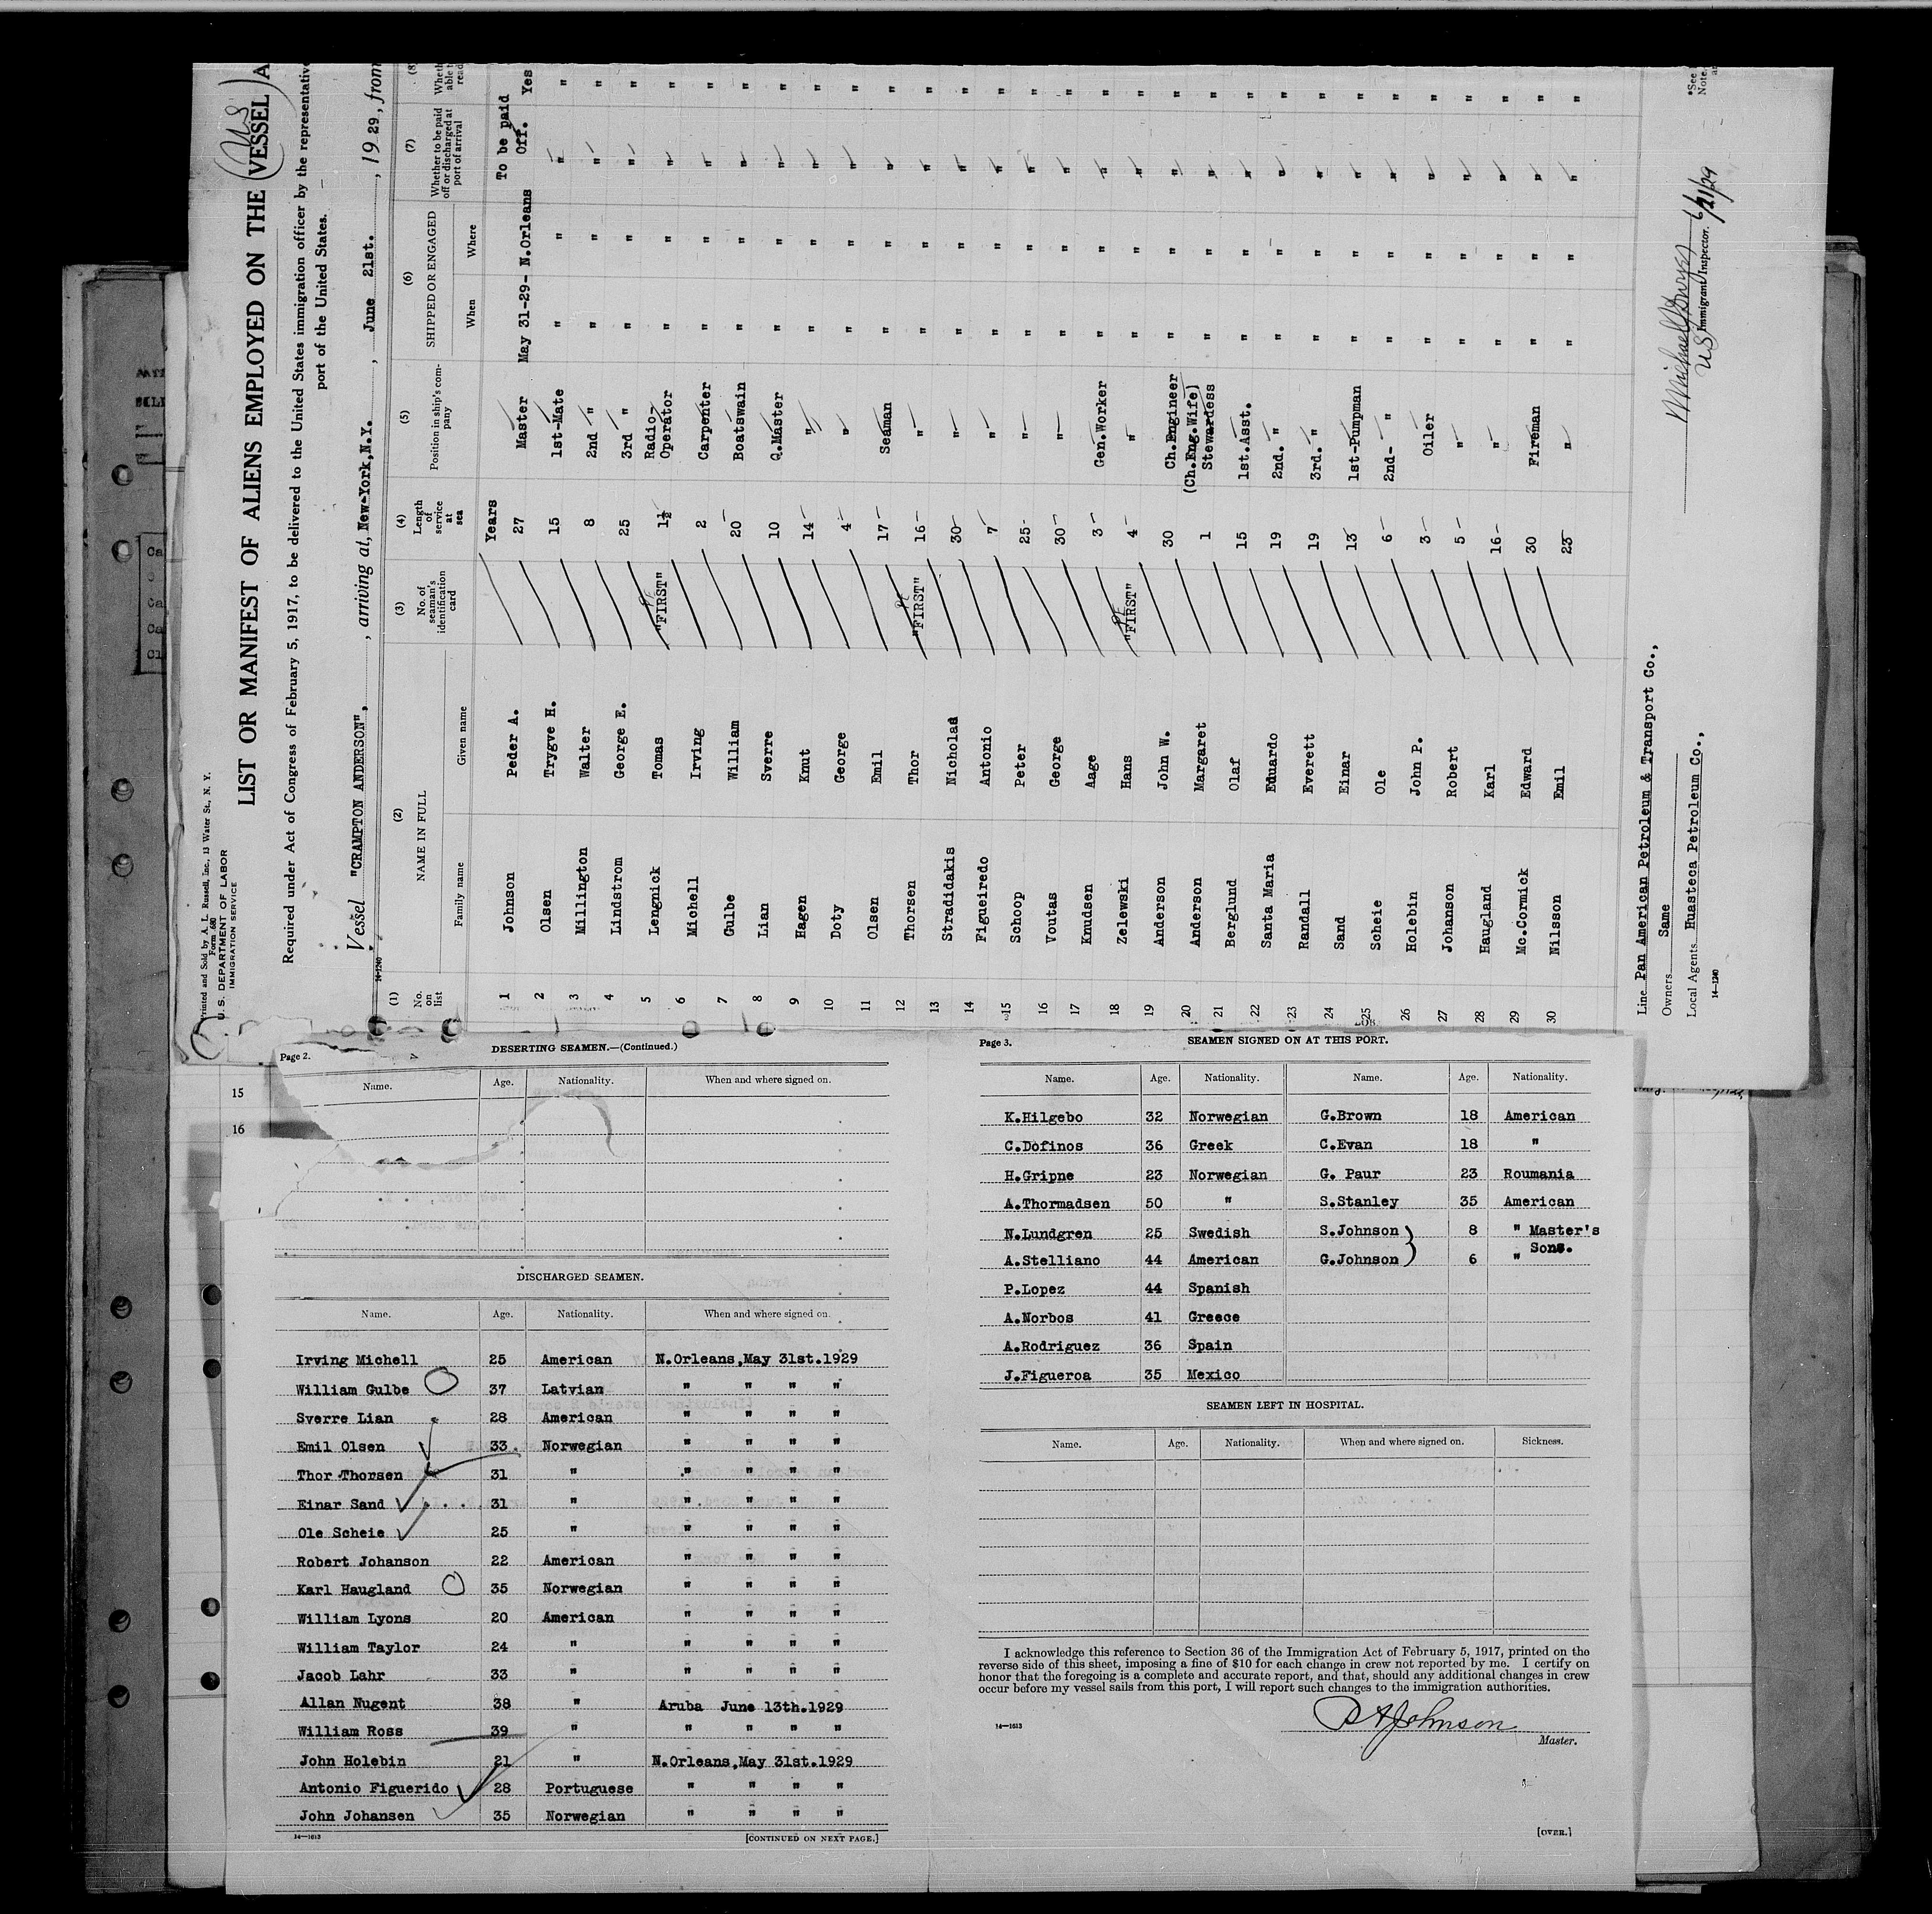 Printed and Sold by A. L. Russell, Inc., 13 Water St., N. Y.
Form 680
U. S. DEPARTMENT OF LABOR
IMMIGRATION SERVICE
LIST OR MANIFEST OF ALIENS EMPLOYED ON THE VESSEL A
US
Required under Act of Congress of February 5, 1917, to be delivered to the United States immigration officer by the representative
port of the United States.
Vessel "CRAMPTON ANDERSON", arriving at, New-York, N.Y. , June 21st. , 1929, from
14-1240
(1) No. on list (2) NAME IN FULL Family name Given name (3) No. of seaman's identification card (4) Length of service at sea (5) Position in ship's company (6) SHIPPED OR ENGAGED When Where (7) Whether to be paid off or discharged at port of arrival (8)
Years To be paid
1 Johnson Peder A. 27 Master May 31-29- N.Orleans Off. Yes
2 Olsen Trygve H. 15 1st-Mate " " " "
3 Millington Walter 8 2nd " " " " "
4 Lindstrom George E. 25 3rd " " " " "
5 Lengnick Tomas "FIRST" 1½ Radio-Operator " " " "
6 Michell Irving 2 Carpenter " " " "
7 Gulbe William 20 Boatswain " " " "
8 Lian Sverre 10 Q.Master " " " "
9 Hagen Knut 14 " " " " "
10 Doty George 4 " " " " "
11 Olsen Emil 17 Seaman " " " "
12 Thorsen Thor "FIRST" 16 " " " " "
13 Stradidakis Nicholas 30 " " " " "
14 Figueiredo Antonio 7 " " " " "
15 Schoop Peter 25 " " " " "
16 Voutas George 30 " " " " "
17 Knudsen Aage 3 Gen.Worker " " " "
18 Zelewski Hans "FIRST" 4 " " " " "
19 Anderson John W. 30 Ch.Engineer " " " "
20 Anderson Margaret 1 (Ch.Eng.Wife) Stewardess " " " "
21 Berglund Olaf 15 1st.Asst. " " " "
22 Santa Maria Eduardo 19 2nd. " " " " "
23 Randall Everett 19 3rd. " " " " "
24 Sand Einar 13 1st-Pumpman " " " "
25 Scheie Ole 6 2nd- " " " " "
26 Holebin John P. 3 Oiler " " " "
27 Johanson Robert 5 " " " " "
28 Haugland Karl 16 " " " " "
29 Mc.Cormick Edward 30 Fireman " " " "
30 Nilsson Emil 23 " " " " "
Line Pan American Petroleum & Transport Co.,
Owners Same
Local Agents Huasteca Petroleum Co.,
14-1240
US Immigrant Inspector. 6/21/29
*See
Note.
15
16
Page 2.
DESERTING SEAMEN.—(Continued.)
Name. Age. Nationality. When and where signed on.
DISCHARGED SEAMEN.
Name. Age. Nationality. When and where signed on.
Irving Michell 25 American N.Orleans,May 31st.1929
William Gulbe 37 Latvian " " " "
Sverre Lian 28 American " " " "
Emil Olsen 33 Norwegian " " " "
Thor Thorsen 31 " " " " "
Einar Sand 31 " " " " "
Ole Scheie 25 " " " " "
Robert Johanson 22 American " " " "
Karl Haugland 35 Norwegian " " " "
William Lyons 20 American " " " "
William Taylor 24 " " " " "
Jacob Lahr 33 " " " " "
Allan Nugent 38 " Aruba June 13th.1929
William Ross 39 " " " " "
John Holebin 21 " N.Orleans,May 31st.1929
Antonio Figuerido 28 Portuguese " " " "
John Johansen 35 Norwegian " " " "
14—1613
[CONTINUED ON NEXT PAGE.]
Page 3.
SEAMEN SIGNED ON AT THIS PORT.
Name. Age. Nationality. Name. Age. Nationality.
K.Hilgebo 32 Norwegian G.Brown 18 American
C.Dofinos 36 Greek C.Evan 18 "
H.Gripne 23 Norwegian G. Paur 23 Roumania
A.Thormadsen 50 " S.Stanley 35 American
N.Lundgren 25 Swedish S.Johnson 8 " Master's
A.Stelliano 44 American G.Johnson 6 " Sons.
P.Lopez 44 Spanish
A.Norbos 41 Greece
A.Rodriguez 36 Spain
J.Figueroa 35 Mexico
SEAMEN LEFT IN HOSPITAL.
Name. Age. Nationality. When and where signed on. Sickness.
I acknowledge this reference to Section 36 of the Immigration Act of February 5, 1917, printed on the
reverse side of this sheet, imposing a fine of $10 for each change in crew not reported by me. I certify on
honor that the foregoing is a complete and accurate report, and that, should any additional changes in crew
occur before my vessel sails from this port, I will report such changes to the immigration authorities.
P A Johnson
14—1613
Master.
[OVER.]